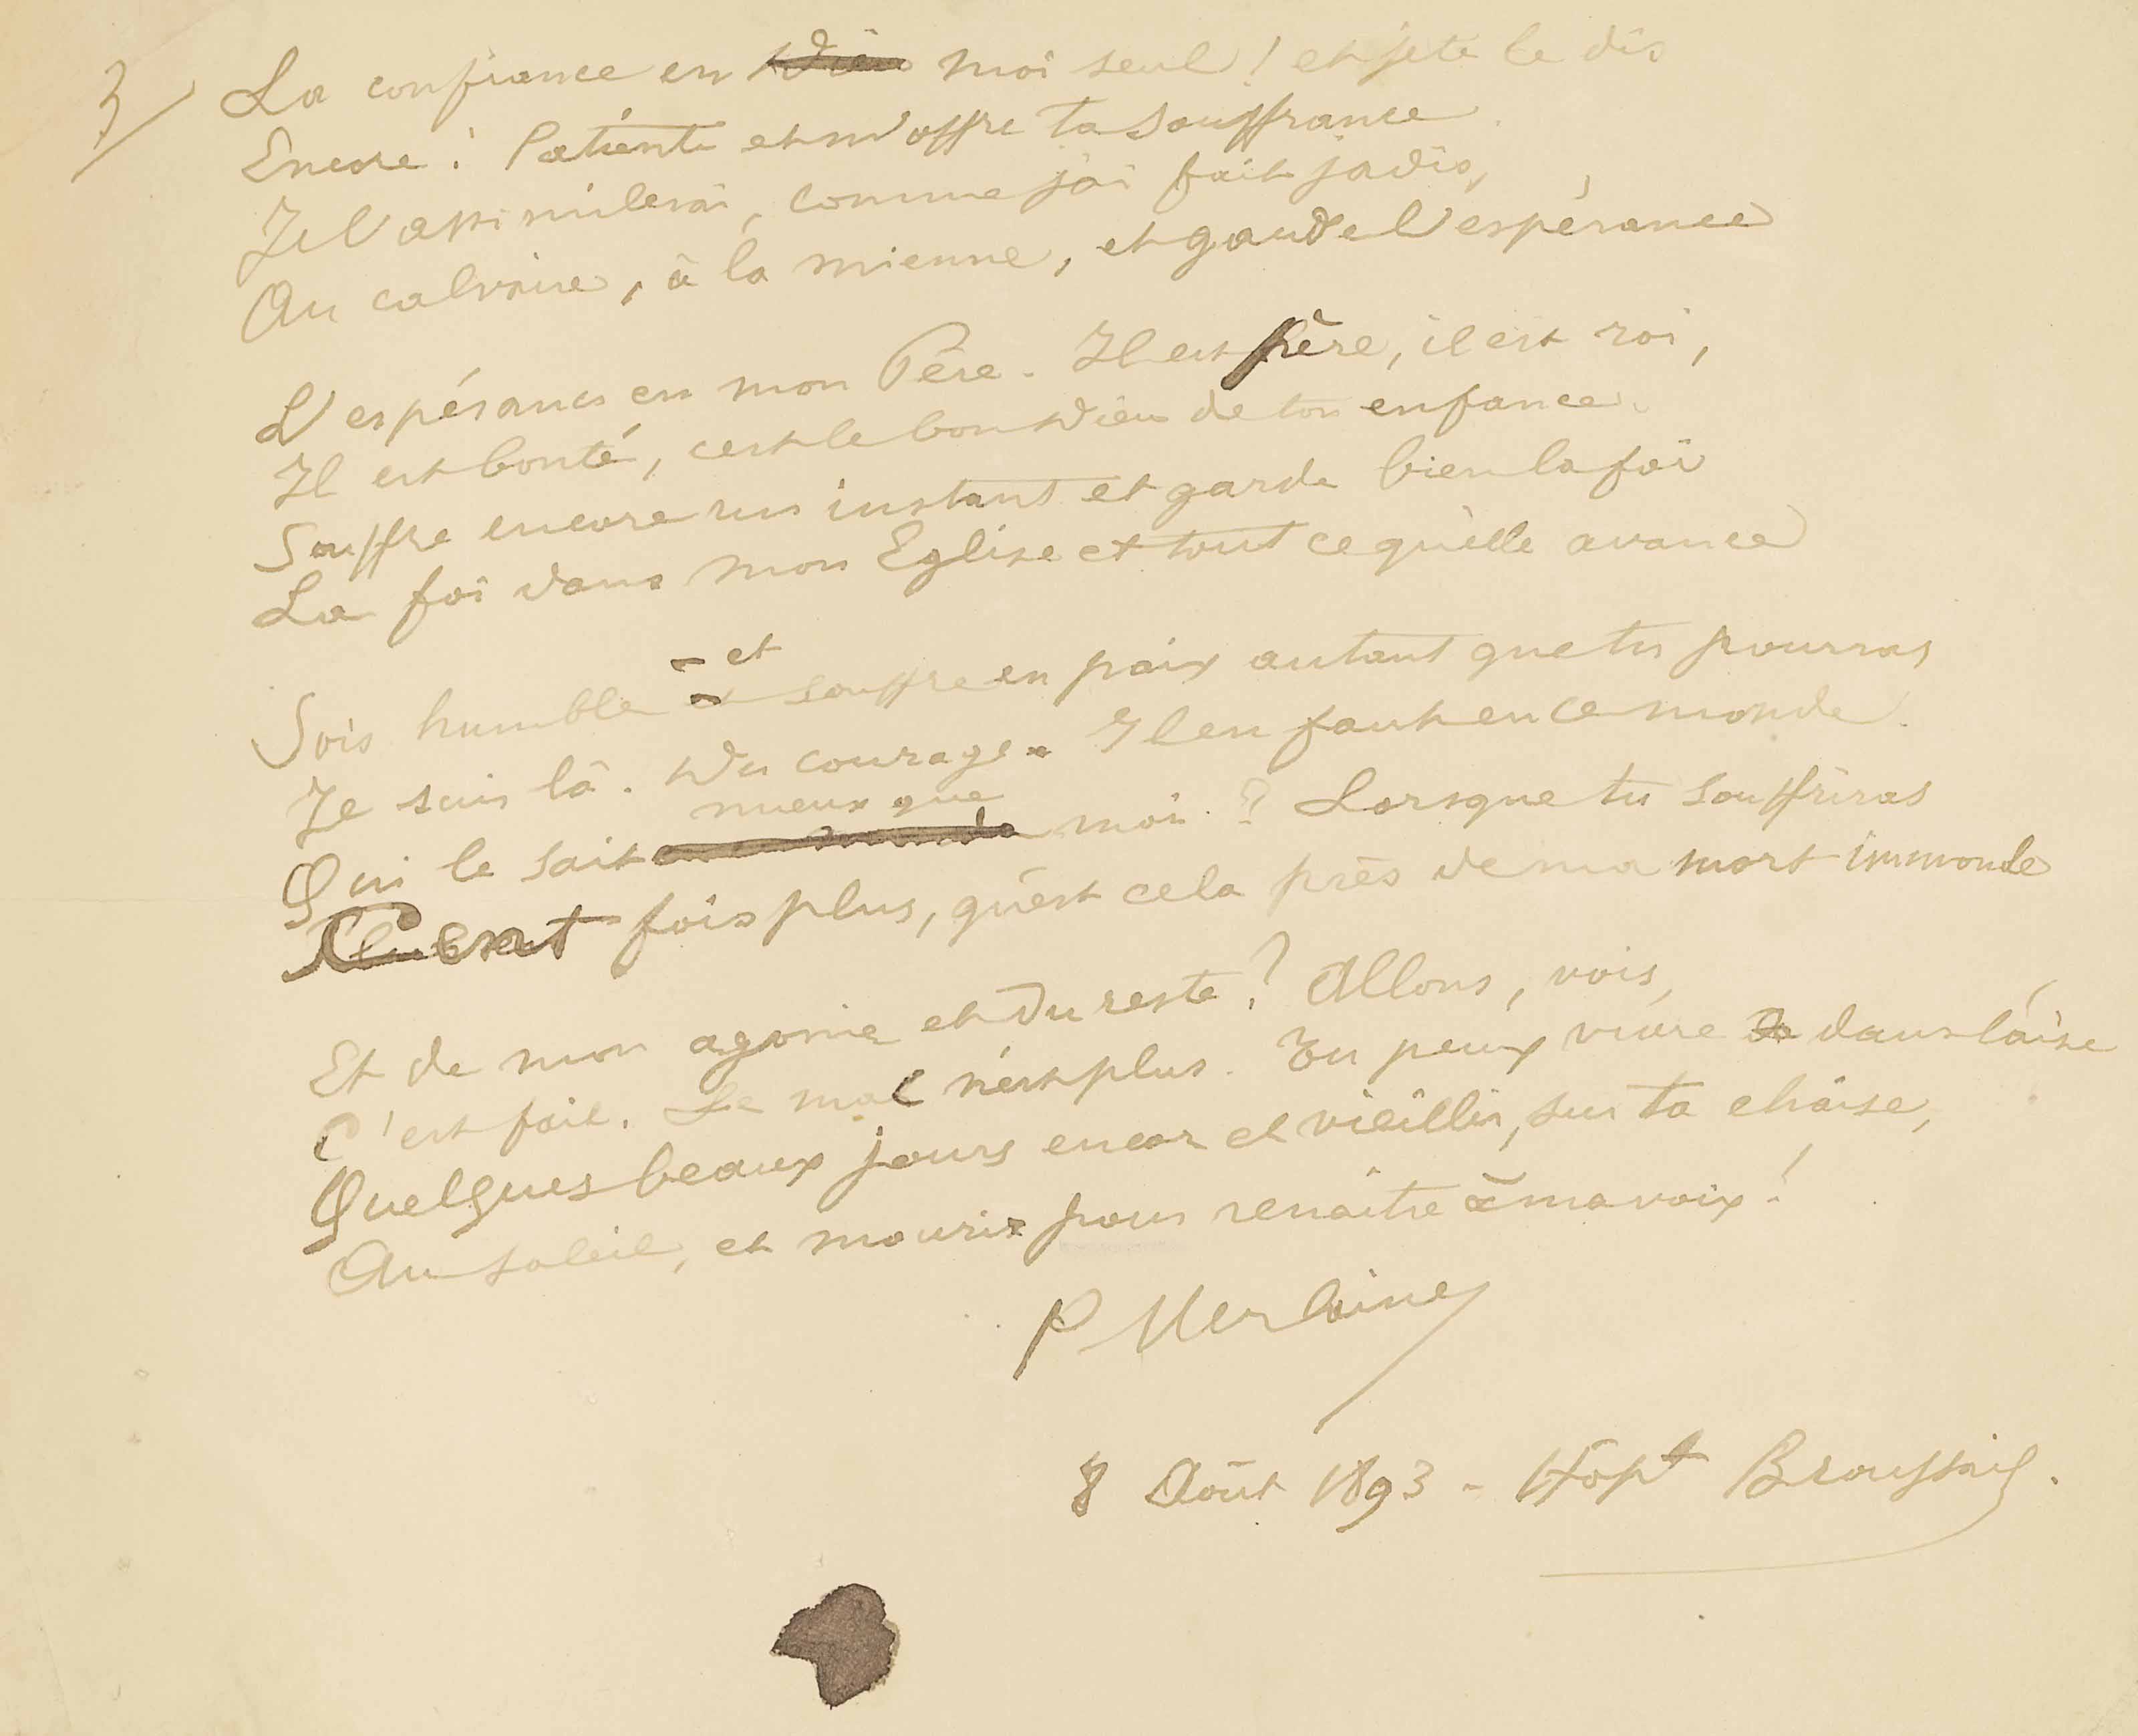 3/
La confiance en Dieu moi seul ! et je te le dis
Encore : Patiente et m'offre ta souffrance.
Je l'assimilerai, comme j'ai fait jadis,
Au calvaire, à la mienne, et garde l'espérance,
L'espérance en mon Père. Il est père, il est roi,
Il est bonté, c'est le bon Dieu de ton enfance.
Souffre encore un instant et garde bien la foi
La foi dans mon Eglise et tout ce qu'elle avance
- et
Sois humble souffre en paix autant que tu pourras
Je suis là. Du courage. Il en faut en ce monde.
mieux que
Qui le sait moi ? Lorsque tu souffriras
Cent fois plus, qu'est cela près de ma mort immonde
Et de mon agonie et du reste ? Allons, vois,
C'est fait. Le mal n'est plus. Tu peux vivre dans l'aise
Quelques beaux jours encor et vieillir, sur ta chaise,
Au soleil, et mourir pour renaître à ma voix !
P Verlaine
8 Août 1893 - Hôpt Broussais.